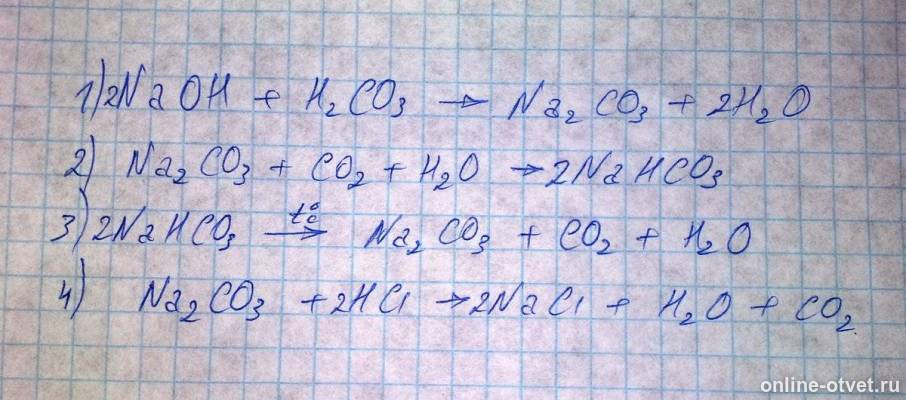 1) 2NaOH + H₂CO₃ → Na₂CO₃ + 2H₂O
2) Na₂CO₃ + CO₂ + H₂O → 2NaHCO₃
3) 2NaHCO₃ t°c→ Na₂CO₃ + CO₂ + H₂O
4) Na₂CO₃ + 2HCl → 2NaCl + H₂O + CO₂
online-otvet.ru